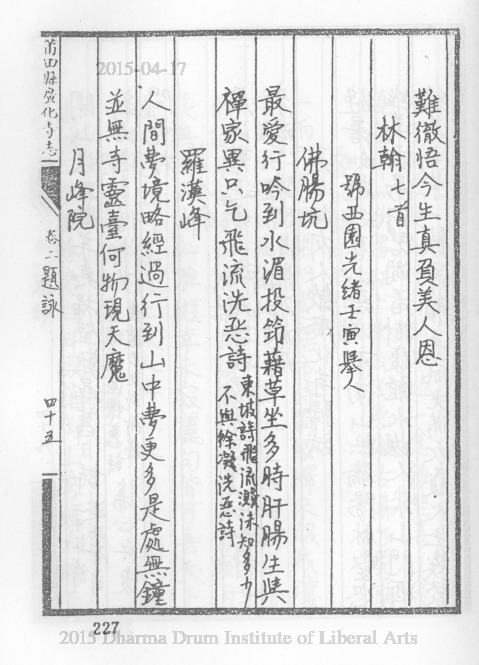 難徹悟今生真負美人恩
林翰七首
號西園光緒壬寅舉人
佛腸坑
最愛行吟到水湄投笻藉草坐多時肝腸生與
禪家異只乞飛流洗惡詩
東坡詩飛流濺沫知多少
不與徐凝洗惡詩
羅漢峰
人間夢境略經過行到山中夢更多是處無鐘
並無寺靈臺何物現天魔
月峰院
莆田縣廣化寺志
卷二題詠
四十五
227
2015-04-17
2015 Dharma Drum Institute of Liberal Arts